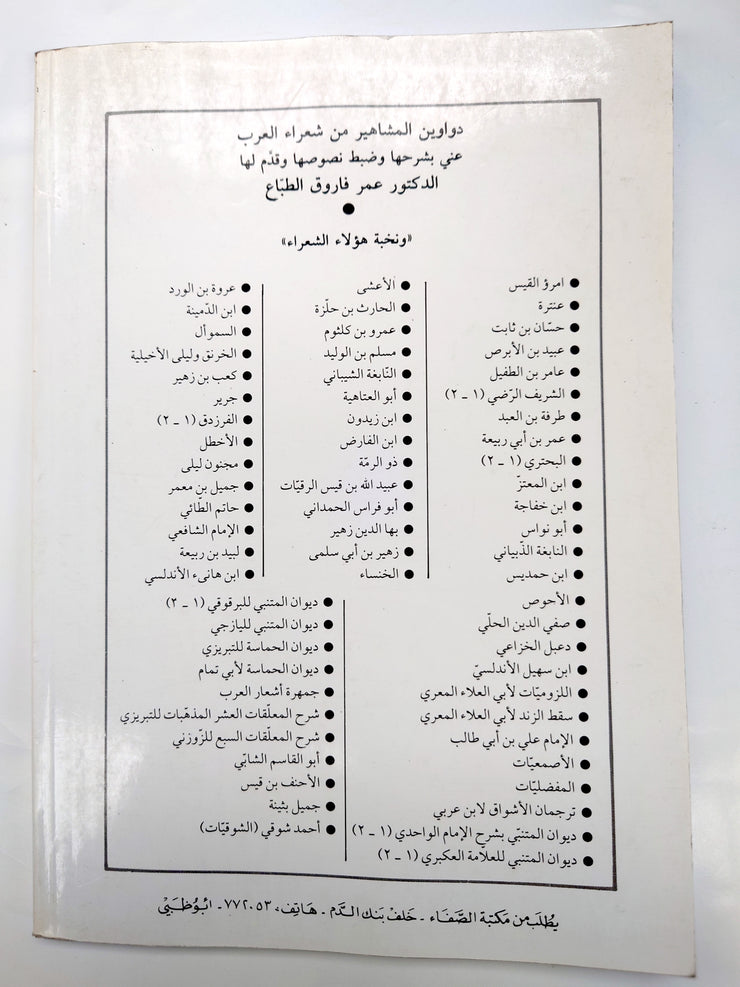 دواوين المشاهير من شعراء العرب
عني بشرحها وضبط نصوصها وقدّم لها
الدكتور عمر فاروق الطبّاع
●
«ونخبة هؤلاء الشعراء»
● امرؤ القيس
● عنترة
● حسّان بن ثابت
● عبيد بن الأبرص
● عامر بن الطفيل
● الشريف الرّضي (١ ـ ٢)
● طرفة بن العبد
● عمر بن أبي ربيعة
● البحتري (١ ـ ٢)
● ابن المعتزّ
● ابن خفاجة
● أبو نواس
● النابغة الذّبياني
● ابن حمديس
● الأعشى
● الحارث بن حلّزة
● عمرو بن كلثوم
● مسلم بن الوليد
● النّابغة الشيباني
● أبو العتاهية
● ابن زيدون
● ابن الفارض
● ذو الرمّة
● عبيد الله بن قيس الرقيّات
● أبو فراس الحمداني
● بها الدين زهير
● زهير بن أبي سلمى
● الخنساء
● عروة بن الورد
● ابن الدّمينة
● السموأل
● الخرنق وليلى الأخيلية
● كعب بن زهير
● جرير
● الفرزدق (١ ـ ٢)
● الأخطل
● مجنون ليلى
● جميل بن معمر
● حاتم الطّائي
● الإمام الشافعي
● لبيد بن ربيعة
● ابن هانىء الأندلسي
● الأحوص
● صفي الدين الحلّي
● دعبل الخزاعي
● ابن سهيل الأندلسيّ
● اللزوميّات لأبي العلاء المعري
● سقط الزند لأبي العلاء المعري
● الإمام علي بن أبي طالب
● الأصمعيّات
● المفضليّات
● ترجمان الأشواق لابن عربي
● ديوان المتنبّي بشرح الإمام الواحدي (١ ـ ٢)
● ديوان المتنبي للعلاّمة العكبري (١ ـ ٢)
● ديوان المتنبي للبرقوقي (١ ـ ٢)
● ديوان المتنبي لليازجي
● ديوان الحماسة للتبريزي
● ديوان الحماسة لأبي تمام
● جمهرة أشعار العرب
● شرح المعلّقات العشر المذهّبات للتبريزي
● شرح المعلّقات السبع للزّوزني
● أبو القاسم الشابّي
● الأحنف بن قيس
● جميل بثينة
● أحمد شوقي (الشوقيّات)
يُطلَب من مكتبة الصَّفاء ـ خلف بنك الدّم ـ هاتف، ٧٧٢٠٥٣ ـ ابُوظَبيْ